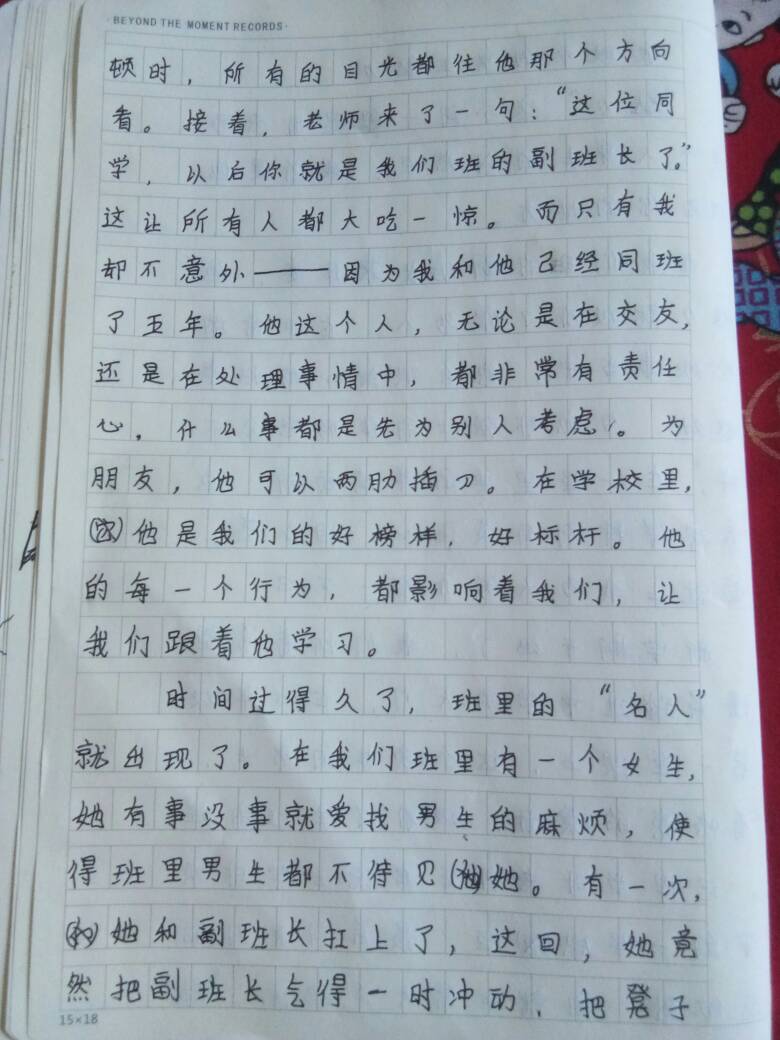 ·BEYOND THE MOMENT RECORDS·
顿时，所有的目光都往他那个方向
看。接着，老师来了一句：“这位同
学，以后你就是我们班的副班长了。”
这让所有人都大吃一惊。而只有我
却不意外——因为我和他己经同班
了五年。他这个人，无论是在交友，
还是在处理事情中，都非常有责任
心，什么事都是先为别人考虑。为
朋友，他可以两肋插刀。在学校里，
他是我们的好榜样，好标杆。他
的每一个行为，都影响着我们，让
我们跟着他学习。
时间过得久了，班里的“名人”
就出现了。在我们班里有一个女生，
她有事没事就爱找男生的麻烦，使
得班里男生都不待见她。有一次，
她和副班长扛上了，这回，她竟
然把副班长气得一时冲动，把凳子
15×18